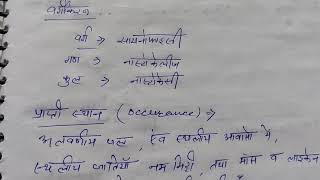 वर्गीकरण -
वर्ग ⇒ सायनोफाइसी
गण ⇒ नॉस्टोकेलीज
कुल ⇒ नॉस्टोकेसी
प्राप्ती स्थान (occurance) ⇒
अलवणीय जल, एंव स्थलीय आवासो मे,
स्थलीय जातियाँ नम मिट्टी, तथा मॉस व लाइकेन